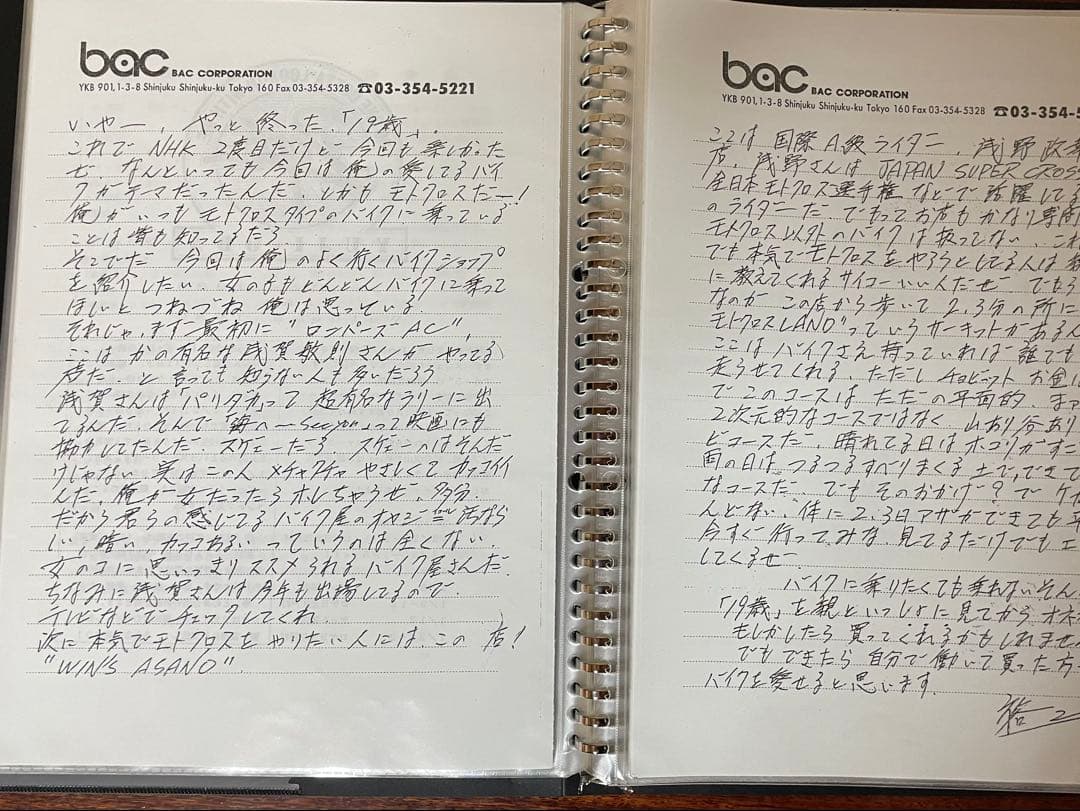 bac BAC CORPORATION
YKB 901, 1-3-8 Shinjuku Shinjuku-ku Tokyo 160 Fax 03-354-5328 ☎03-354-5221
いやー、やっと終った、「19歳」。
これで NHK 2度目だけど 今回も楽しかった
ぜ、なんといっても今回は俺の愛してるバイ
クがテーマだったんだ。しかもモトクロスだー!
俺がいつもモトクロスタイプのバイクに乗っている
ことは皆も知ってるだろ
そこでだ 今回は俺のよく行くバイクショップ
を紹介したい。女の子もどんどんバイクに乗って
ほしいとつねづね俺は思っている。
それじゃ、まず最初に"ロンパーズAC",
ここは かの有名な浅賀敏則さんが やってる
店だ. と言っても知らない人も多いだろう
浅賀さんは「パリダカ」って超有名なラリーに出
てるんだ。そんで「海へ—See you」って映画にも
協力してたんだ. スゲェーだろ スゲェーのはそんだ
けじゃない 実はこの人 メチャクチャ やさしくて カッコイイ
んだ、俺が女だったらホレちゃうぜ、多分.
だから君らの感じてるバイク屋のオヤジ
しい、暗い、カッコわるい、っていうのは全くない.
女のコに思いっきりススメられるバイク屋さんだ.
ちなみに浅賀さんは今年も出場してるので.
テレビなどでチェックしてくれ
次に本気でモトクロスをやりたい人には、この店!
"WIN'S ASANO"
bac BAC CORPORATION
YKB 901, 1-3-8 Shinjuku Shinjuku-ku Tokyo 160 Fax 03-354-5328 ☎03-354-5
ここは 国際A級ライダー、浅野
店. 浅野さんは JAPAN SUPER CROSS
全日本モトクロス選手権 などで活躍してる
のライダーだ. でもってお店もかなり専門
モトクロス以外のバイクは扱ってない、これ
でも本気でモトクロスをやろうとしてる人は
に教えてくれるサイコーいい人だぜ
なのが この店から歩いて2,3分の所に
モトクロスLAND"っていうサーキットがあるん
ここはバイクさえ持っていれば誰でも
走らせてくれる、ただし チョビット お金は
で このコースは ただの平面的、まァ
2次元的なコースではなく 山あり谷あり
ビコースだ、晴れてる日はホコリがすご
雨の日は つるつるすべりまくる土でできて
なコースだ. でも そのおかげ?でケガ
んどない、体に2,3日アザができても
今すぐ行ってみな、見てるだけでも
してくるぜ
バイクに乗りたくても乗れないそん
「19歳」を親といっしょに見てから
もしかしたら買ってくれるかもしれませ
でもできたら 自分で働いて買った方
バイクを愛せると思います.